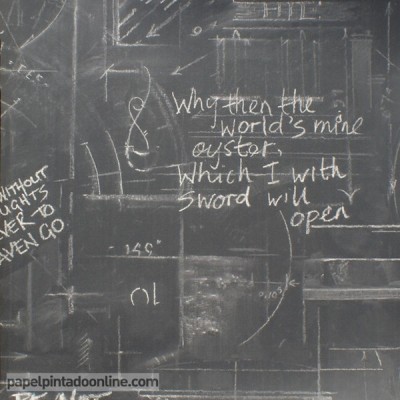 Why then the
world's mine
oyster,
Which I with
sword will
open
WITHOUT
UGHTS
VER TO
AVEN GO
papelpintadoonline.com